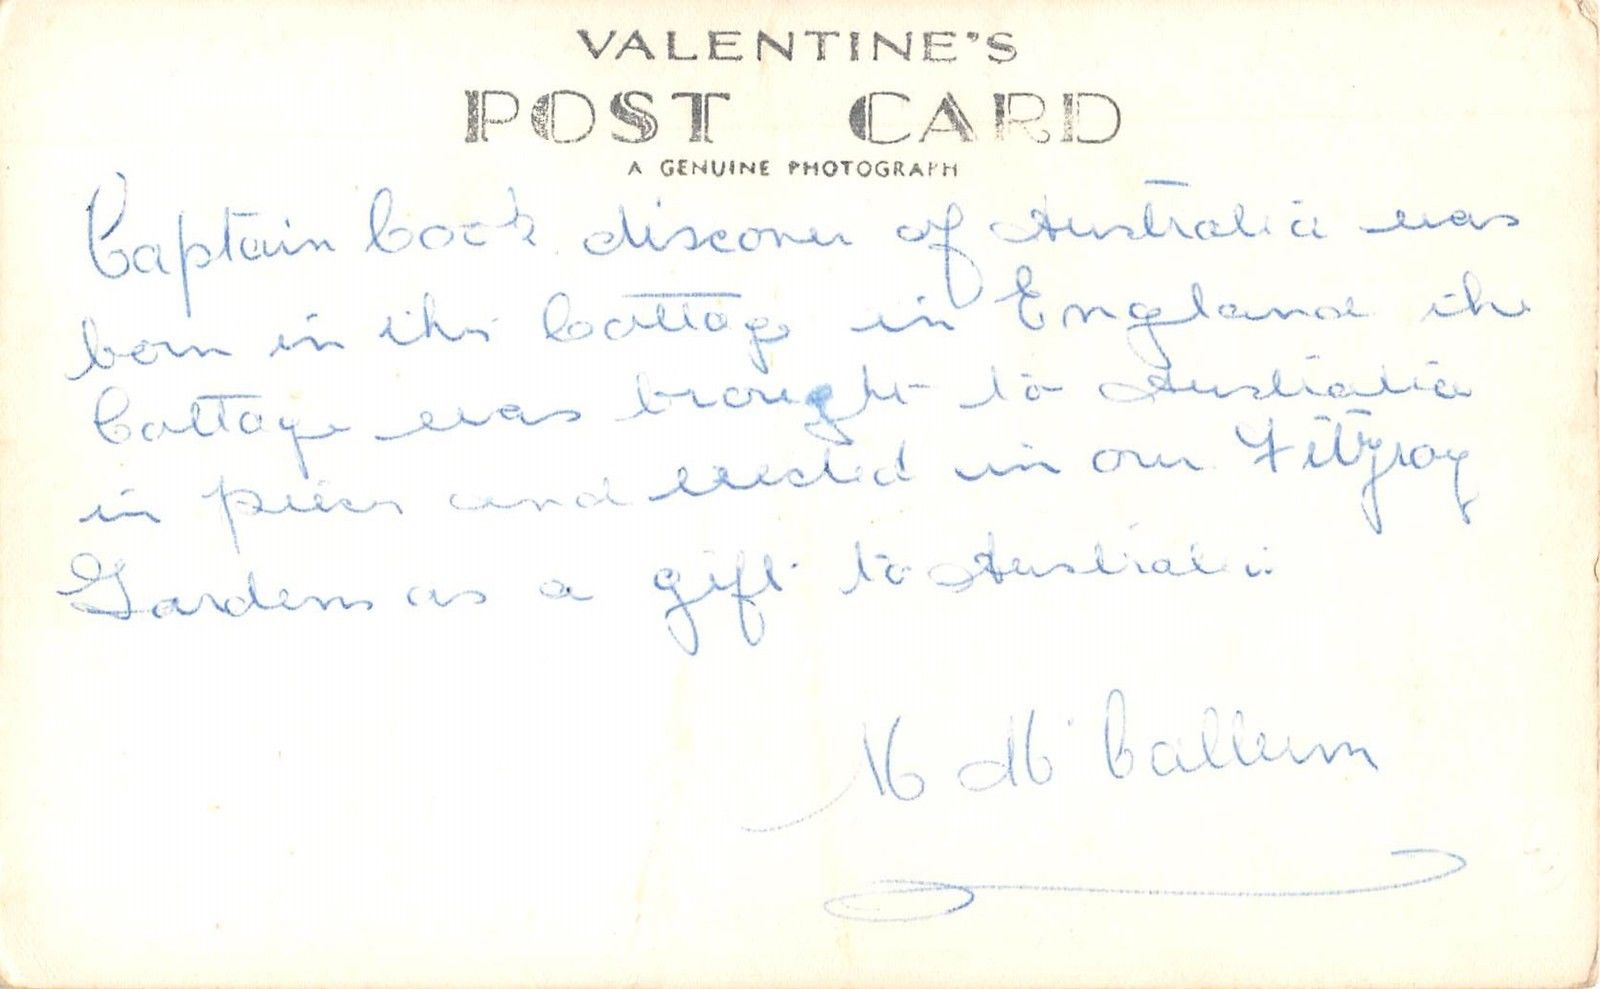 VALENTINE'S
POST CARD
A GENUINE PHOTOGRAPH
Captain Cook discover of Australia was
born in this Cottage in England the
Cottage was brought to Australia
in pieces and erected in our Fitzroy
Gardens as a gift to Australia
McCallum